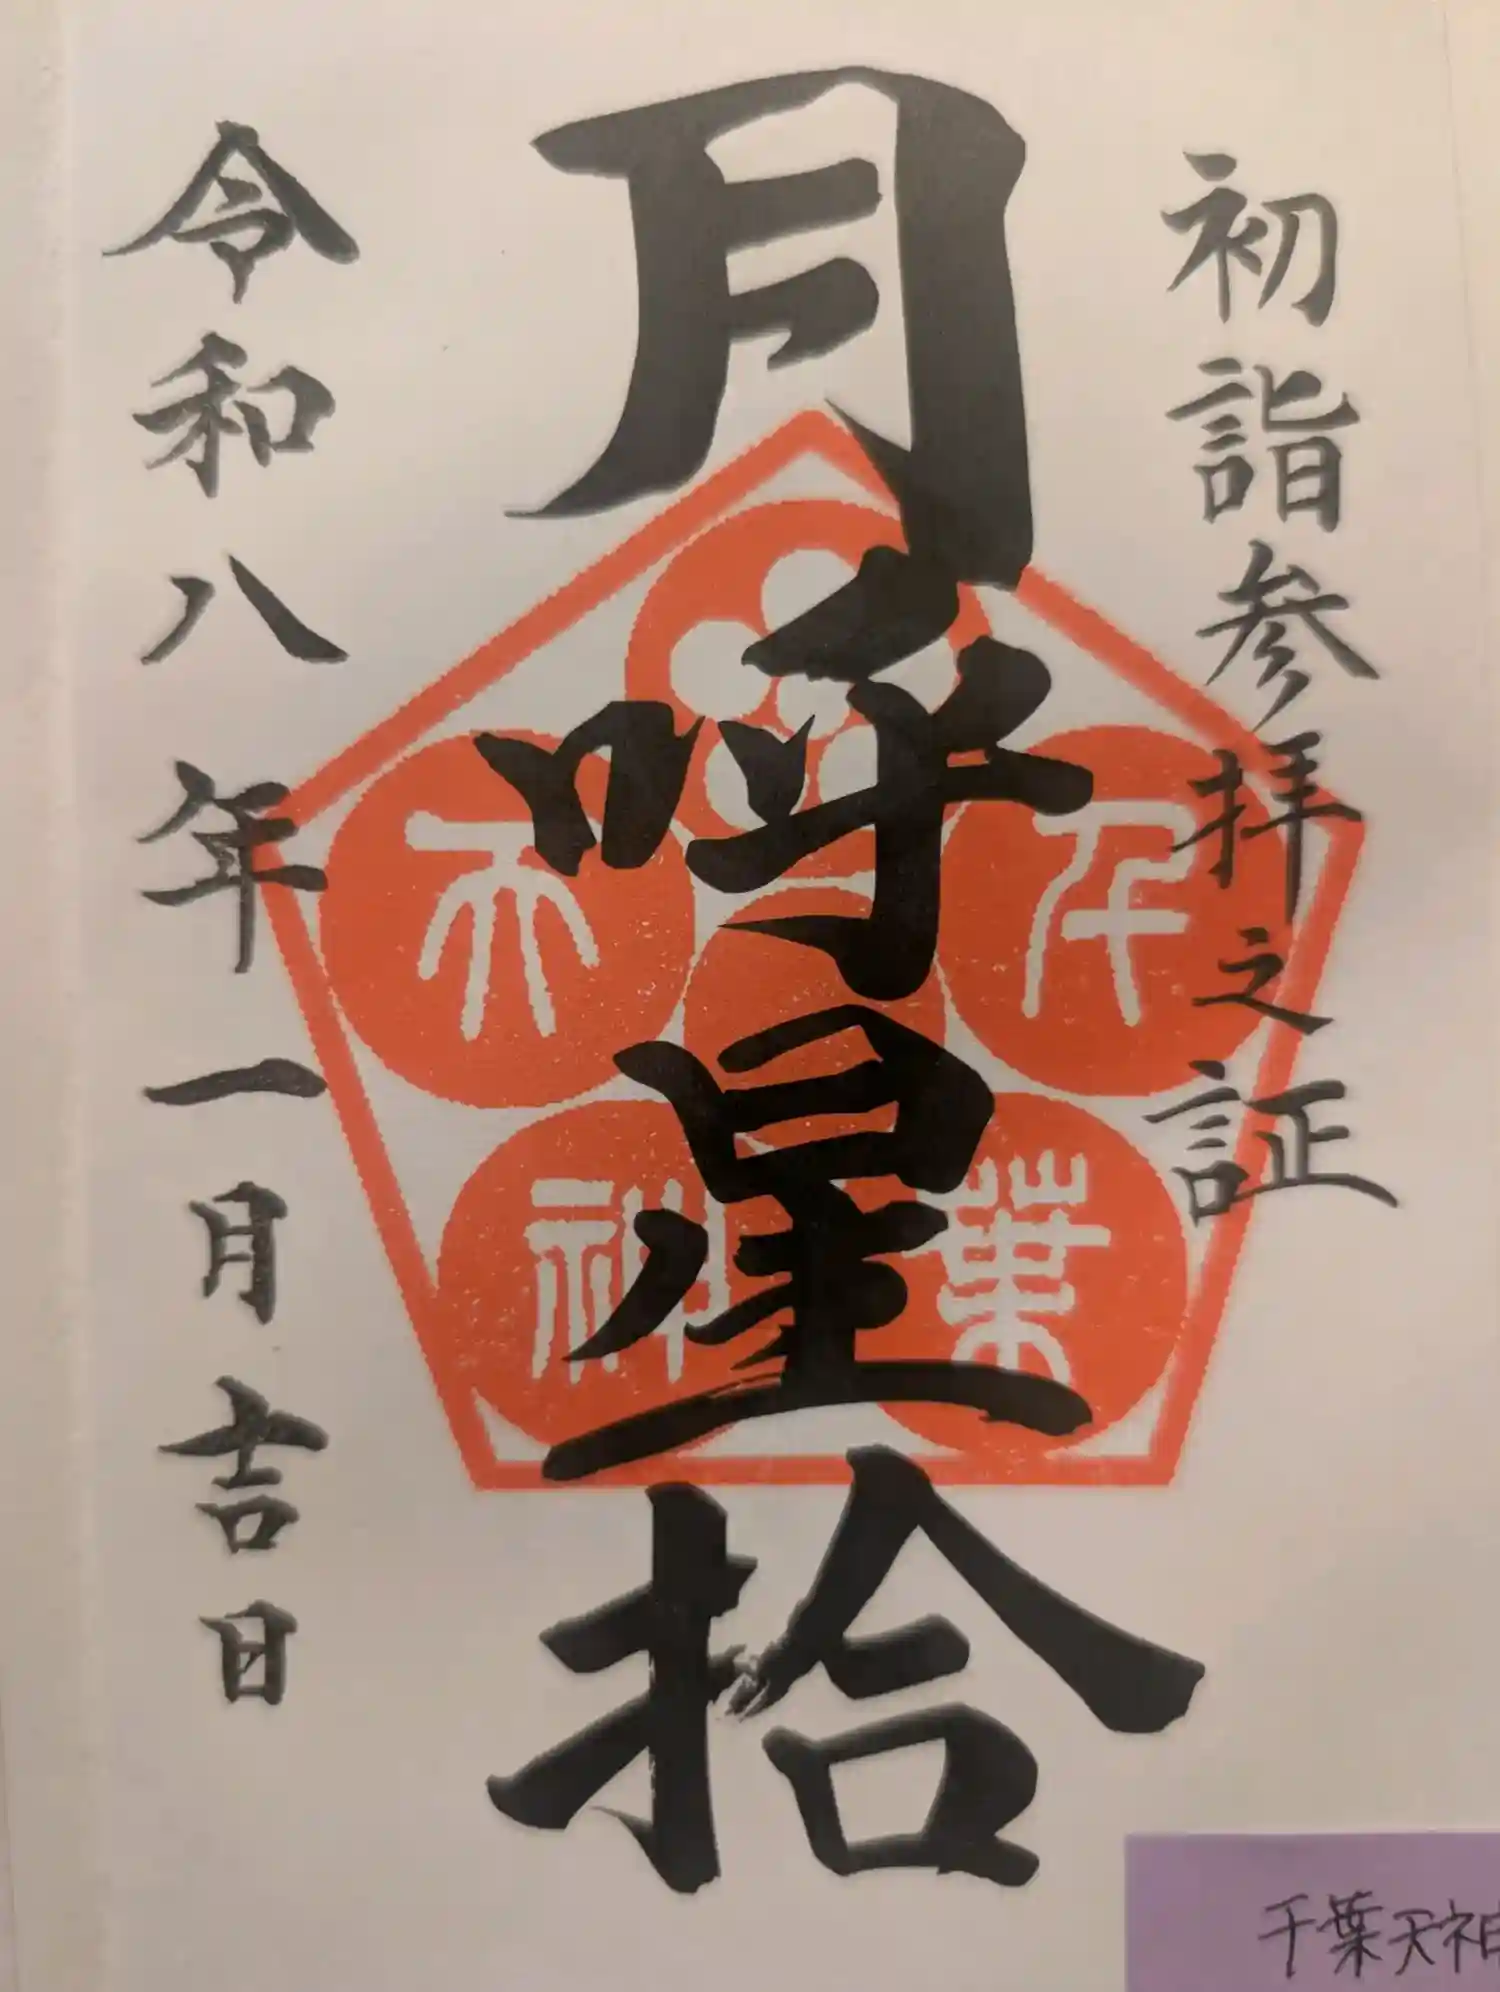 初詣参拝之証
月呼星拾
令和八年一月吉日
千葉天神
千葉天神